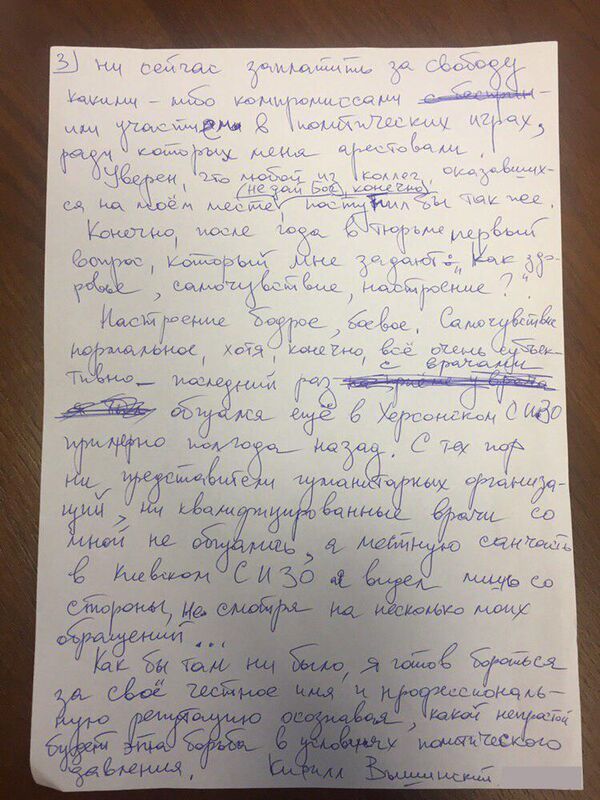 3) ни сейчас заплатить за свободу
какими-либо компромиссами
или участием в политических играх,
ради которых меня арестовали.
Уверен, что любой из коллег, оказавших-
(не дай Бог, конечно)
ся на моём месте, поступил бы так же.
Конечно, после года в тюрьме первый
вопрос, который мне задают: "Как здо-
ровье, самочувствие, настроение?"
Настроение бодрое, боевое. Самочувствие
нормальное, хотя, конечно, всё очень субъек-
с врачами
тивно – последний раз
общался ещё в Херсонском СИЗО
примерно полгода назад. С тех пор
ни представители гуманитарных организа-
ций, ни квалифицированные врачи со
мной не общались, я местную санчасть
в Киевском СИЗО я видел лишь со
стороны, не смотря на несколько моих
обращений...
Как бы там ни было, я готов бороться
за своё честное имя и профессиональ-
ную репутацию осознавая, какой непростой
будет эта борьба в условиях политического
давления. Кирилл Вышинский